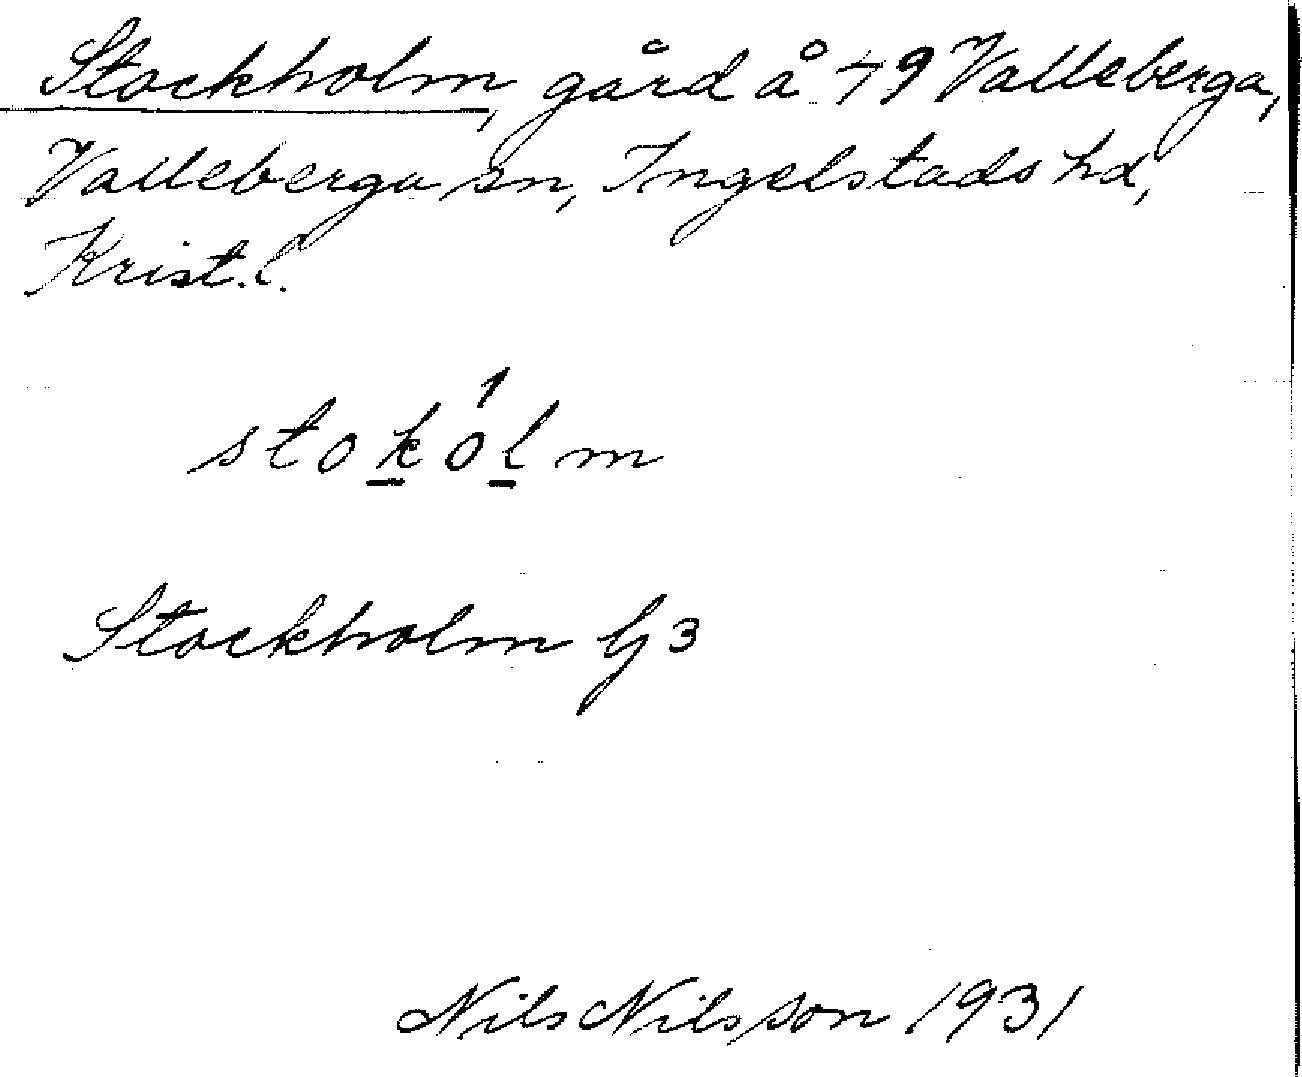 Stockholm, gård å 79 Valleberga,
Valleberga sn, Ingelstads hd,
Krist.l.
stokólm
Stockholm Gj 3
Nils Nilsson 1931